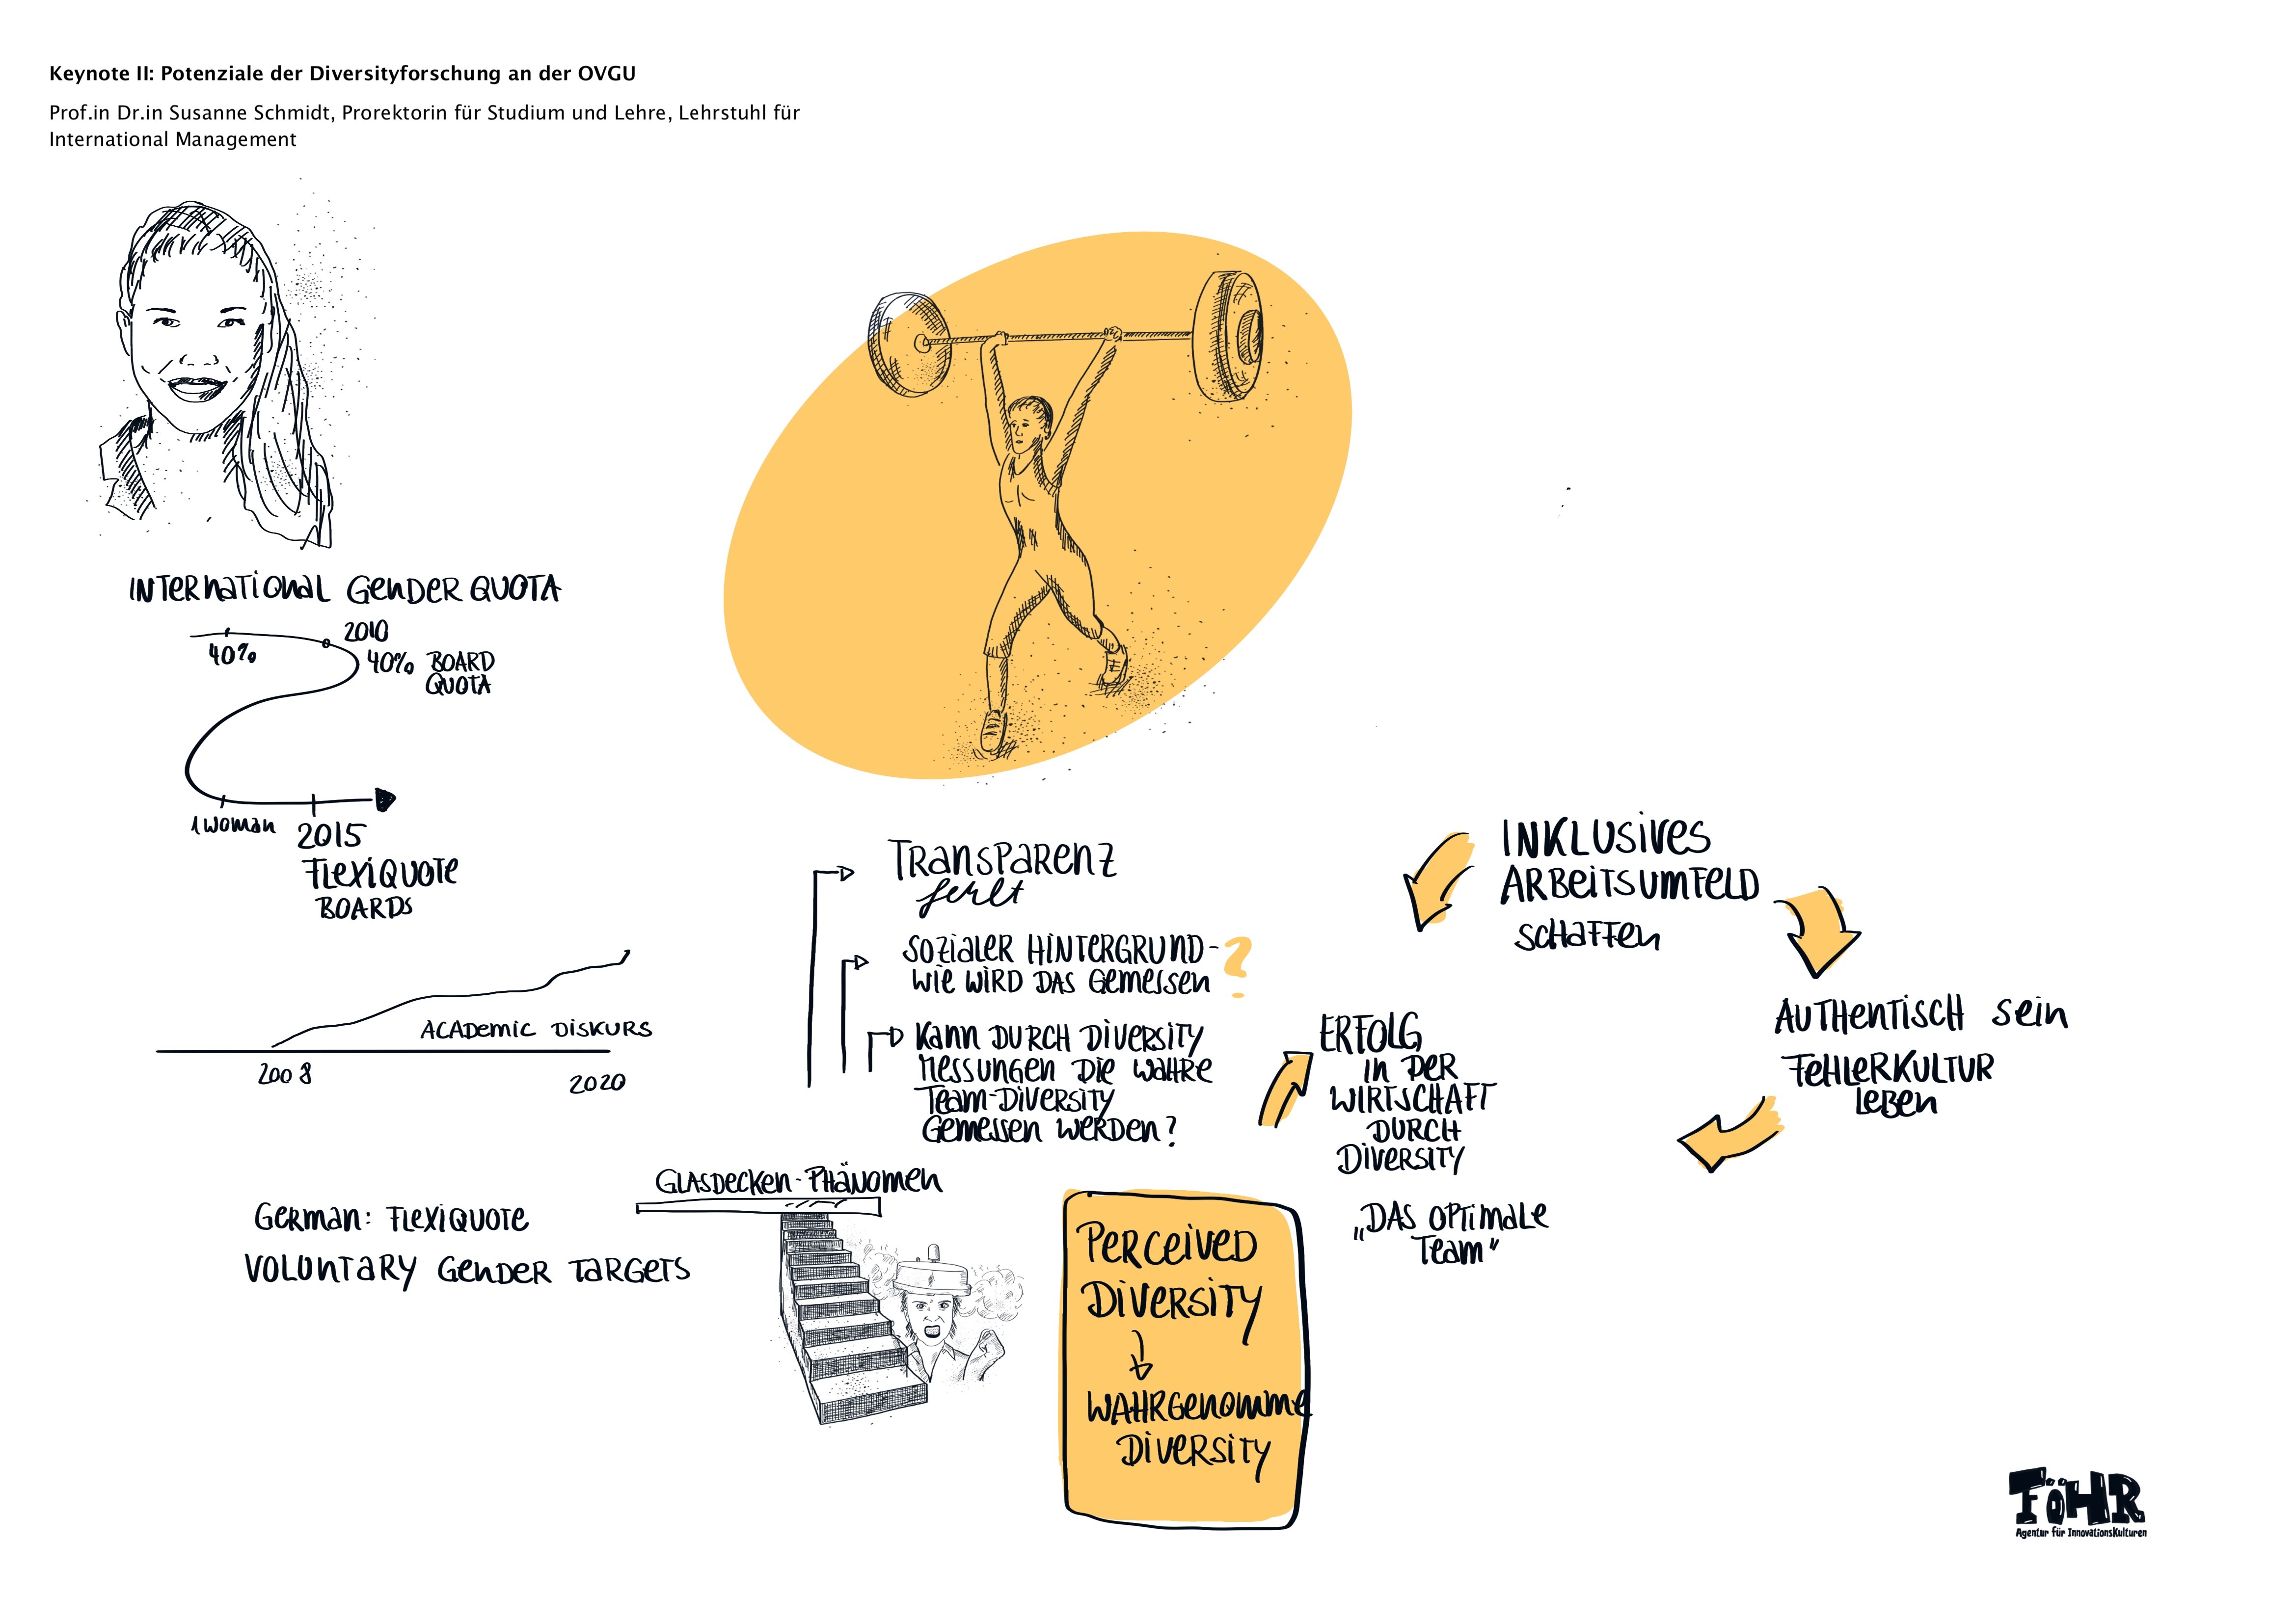 Keynote II: Potenziale der Diversityforschung an der OVGU
Prof.in Dr.in Susanne Schmidt, Prorektorin für Studium und Lehre, Lehrstuhl für
International Management
INTERNATIONAL GENDER QUOTA
2010
40%
40% BOARD
QUOTA
1 WOMAN
2015
FLEXIQUOTE
BOARDS
ACADEMIC DISKURS
2008
2020
GERMAN: FLEXIQUOTE
VOLUNTARY GENDER TARGETS
TRANSPARENZ
fehlt
SOZIALER HINTERGRUND-
WIE WIRD DAS GEMESSEN ?
KANN DURCH DIVERSITY
MESSUNGEN DIE WAHRE
TEAM-DIVERSITY
GEMESSEN WERDEN?
GLASDECKEN-PHÄNOMEN
PERCEIVED
DIVERSITY
WAHRGENOMME
DIVERSITY
INKLUSIVES
ARBEITSUMFELD
SCHAFFEN
AUTHENTISCH SEIN
FEHLERKULTUR
LEBEN
ERFOLG
IN DER
WIRTSCHAFT
DURCH
DIVERSITY
„DAS OPTIMALE
TEAM“
FÖHR
Agentur für InnovationsKulturen